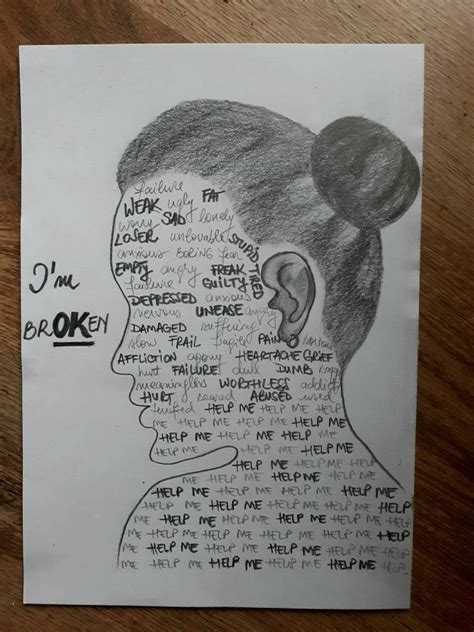 I'm
BrOKen
failure
WEAK ugly FAT
worry SAD lonely
LOSER unlovable STUPID TIRED
anxious BORING fear
EMPTY angry FREAK
failure GUILTY
DEPRESSED anxious
nervous UNEASE angry
DAMAGED suffering
slow FRAIL PAIN
AFFLICTION agony HEARTACHE GRIEF
hurt FAILURE dull DUMB
meaningless WORTHLESS addict
HURT scared ABUSED used
terrified HELP ME HELP ME HELP ME
ME HELP ME HELP ME HELP ME
HELP ME HELP ME HELP ME
HELP ME HELP ME HELP ME
HELP ME HELP ME HELP ME
HELP ME HELP ME HELP ME HELP ME
HELP ME HELP ME HELP ME HELP ME HELP ME
ME HELP ME HELP ME HELP ME HELP ME HELP
ME HELP ME HELP ME HELP ME HELP ME HELP ME
HELP ME HELP ME HELP ME HELP ME HELP ME
ME HELP ME HELP ME HELP ME HELP ME HELP ME
ME HELP ME HELP ME HELP ME HELP ME